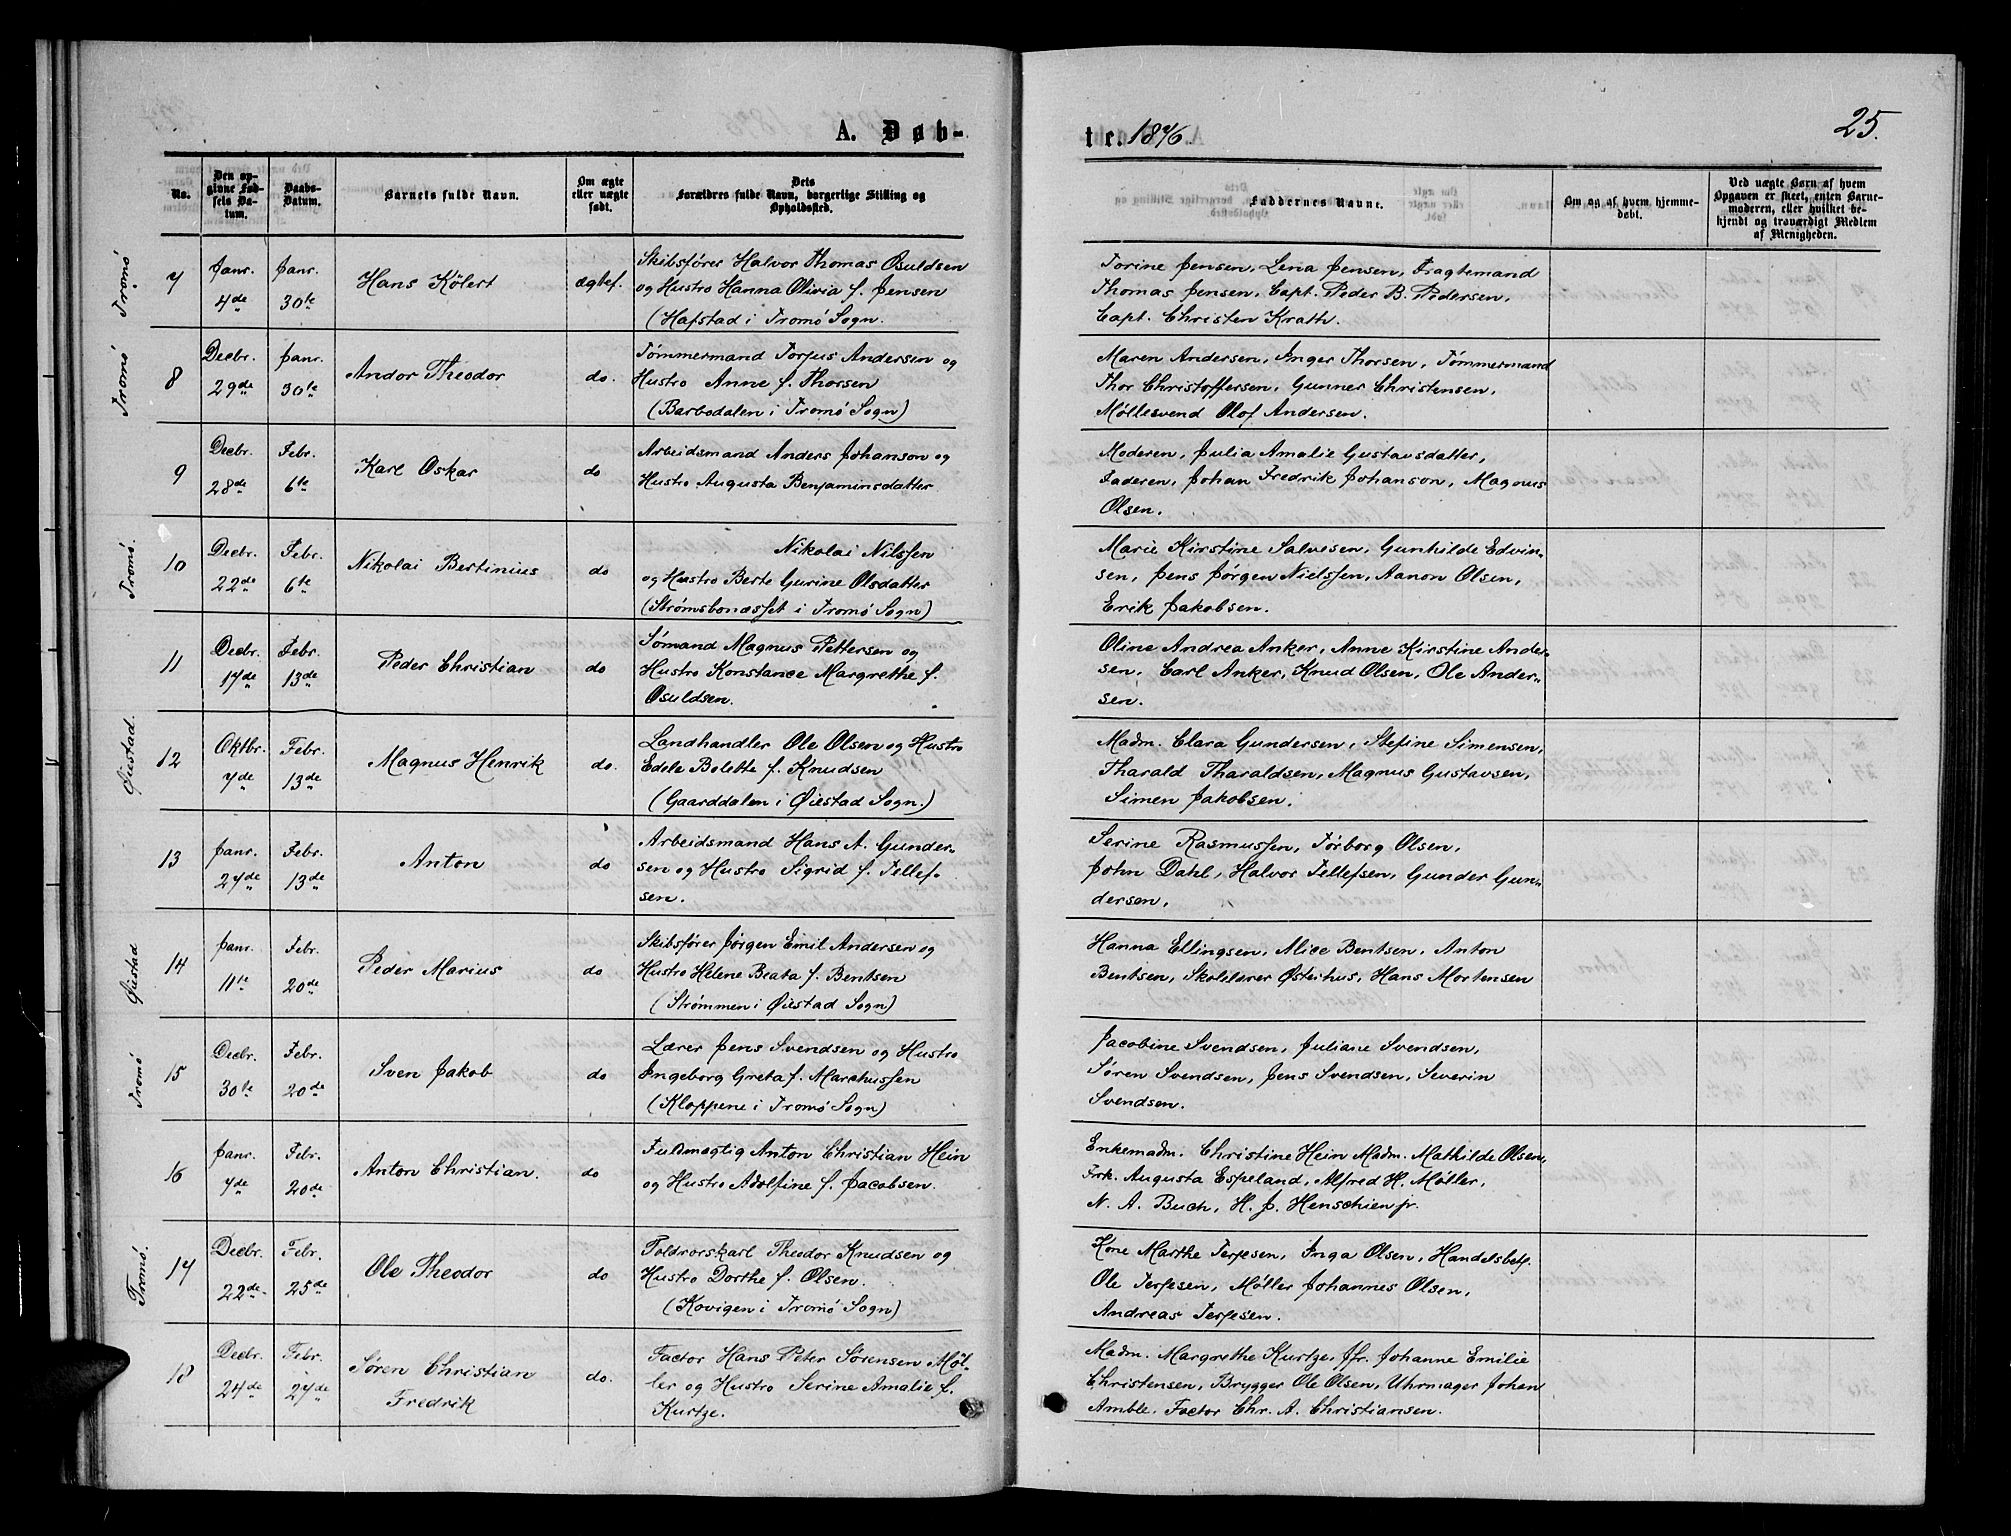 A. Døb-
te. 1876.
25.
No.
Den op-
givne Fød-
sels Da-
tum.
Daabs-
Datum.
Barnets fulde Navn.
Om ægte
eller uægte
født.
Dets
Forældres fulde Navn, borgerlige Stilling og
Opholdssted.
Faddernes Navne.
Om og af hvem hjemme-
døbt.
Ved uægte Børn af hvem
Opgaven er skeet, enten Barne-
moderen, eller hvilket be-
kjendt og troværdigt Medlem
af Menigheden.
Tromø
7
Janr.
4de
Janr.
30te
Hans Kölert
ægtef.
Skibsfører Halvor Thomas Osuldsen
og Hustro Hanna Olivia f. Jensen
(Hafstad i Tromø Sogn.
Torine Jensen, Lena Jensen, Fragtemand
Thomas Jensen, Capt. Peder B. Pedersen,
Capt. Christen Krath.
Tromø
8
Decbr.
29de
Janr.
30te
Andor Theodor
do.
Tømmermand Torjus Andersen og
Hustro Anne f. Thorsen
(Barbodalen i Tromø Sogn)
Maren Andersen, Inger Thorsen, Tømmermand
Thor Christoffersen, Gunner Christensen,
Møllesvend Olof Andersen.
9
Decbr.
28de
Febr.
6te
Karl Oskar
do
Arbeidsmand Anders Johanson og
Hustro Augusta Benjaminsdatter
Moderen, Julia Amalie Gustavsdatter,
Faderen, Johan Fredrik Johanson, Magnus
Olsen.
Tromø.
10
Decbr.
22de
Febr.
6te
Nikolai Bertinius
do
Nikolai Nilssen
og Hustro Berte Gurine Olsdatter
(Strømsbonæsset i Tromø Sogn)
Marie Kirstine Salvesen, Gunhilde Edvin-
sen, Jens Jørgen Nielssen, Aanon Olsen,
Erik Jakobsen.
11
Decbr.
17de
Febr.
13de
Peder Christian
do
Sømand Magnus Pettersen og
Hustro Konstance Margrethe f.
Osuldsen.
Oline Andrea Anker, Anne Kirstine Ander-
sen, Carl Anker, Knud Olsen, Ole Ander-
sen.
Øiestad.
12
Oktbr.
7de
Febr.
13de
Magnus Henrik
do.
Landhandler Ole Olsen og Hustro
Edele Bolette f. Knudsen
(Gaarddalen i Øiestad Sogn.)
Madm. Clara Gundersen, Stefine Simensen,
Tharald Tharaldsen, Magnus Gustavsen,
Simen Jakobsen.
13
Janr.
27de
Febr.
13de
Anton
do
Arbeidsmand Hans A. Gunder-
sen og Hustro Sigrid f. Tellef-
sen.
Serine Rasmussen, Tørborg Olsen,
John Dahl, Halvor Tellefsen, Gunder Gun-
dersen.
Øiestad
14
Janr.
11te
Febr.
20de
Peder Marius
do
Skibsfører Jørgen Emil Andersen og
Hustro Helene Beata f. Bentsen
(Strømmen i Øiestad Sogn)
Hanna Ellingsen, Alice Bentsen, Anton
Bentsen, Skolelærer Østerhus, Hans Mortensen
Tromø
15
Decbr.
30te
Febr.
20de
Sven Jakob
do
Lærer Jens Svendsen og Hustro
Ingeborg Greta f. Marchussen
(Kloppene i Tromø Sogn)
Jacobine Svendsen, Juliane Svendsen,
Søren Svendsen, Jens Svendsen, Severin
Svendsen.
16
Janr.
7de
Febr.
20de
Anton Christian.
do
Fuldmægtig Anton Christian Hein
og Hustro Adolfine f. Jacobsen.
Enkemadm. Christine Hein Madm. Mathilde Olsen,
Frk. Augusta Espeland, Alfred H. Møller,
N. A. Buch, H. J. Henschien jr.
Tromø.
17
Decbr.
22de
Febr.
25de
Ole Theodor
do
Toldrorskarl Theodor Knudsen og
Hustro Dorthe f. Olsen.
(Kovigen i Tromø Sogn)
Kone Marthe Terjesen, Inga Olsen, Handelsbetj.
Ole Terjesen, Møller Johannes Olsen,
Andreas Terjesen.
18
Decbr.
24de
Febr.
27de
Søren Christian
Fredrik
do.
Factor Hans Peter Sørensen Møl-
ler og Hustro Serine Amalie f.
Kurtze.
Madm. Margrethe Kurtze, Jfr. Johanne Emilie
Christensen, Brygger Ole Olsen, Uhrmager Johan
Amble. Factor Chr. A. Christiansen.